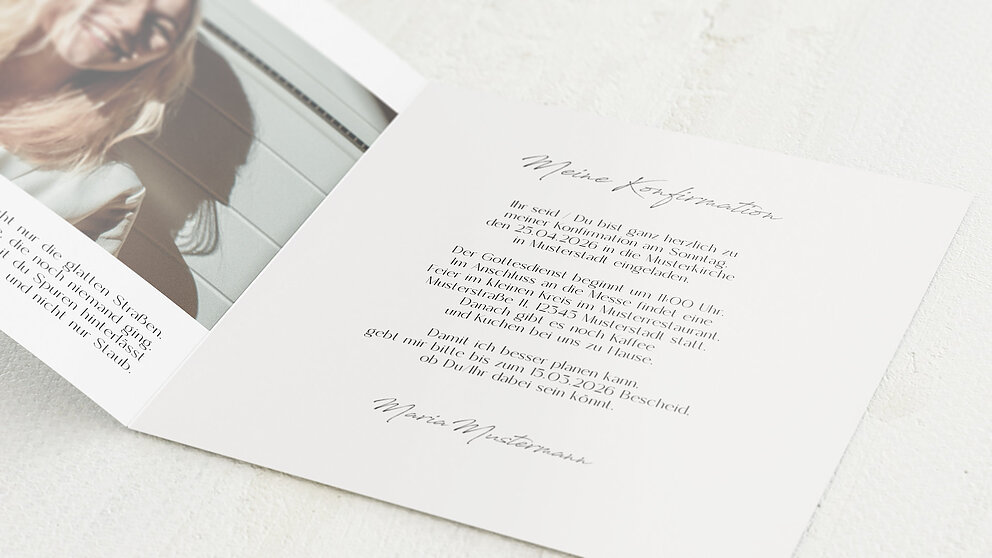 nur die glatten Straßen.
die noch niemand ging,
du Spuren hinterlässt
und nicht nur Staub.
Meine Konfirmation
Ihr seid / Du bist ganz herzlich zu
meiner Konfirmation am Sonntag,
den 25.04.2026 in die Musterkirche
in Musterstadt eingeladen.
Der Gottesdienst beginnt um 11:00 Uhr.
Im Anschluss an die Messe findet eine
Feier im kleinen Kreis im Musterrestaurant,
Musterstraße 11, 12345 Musterstadt statt.
Danach gibt es noch Kaffee
und Kuchen bei uns zu Hause.
Damit ich besser planen kann,
gebt mir bitte bis zum 15.03.2026 Bescheid,
ob Du/Ihr dabei sein könnt.
Maria Mustermann